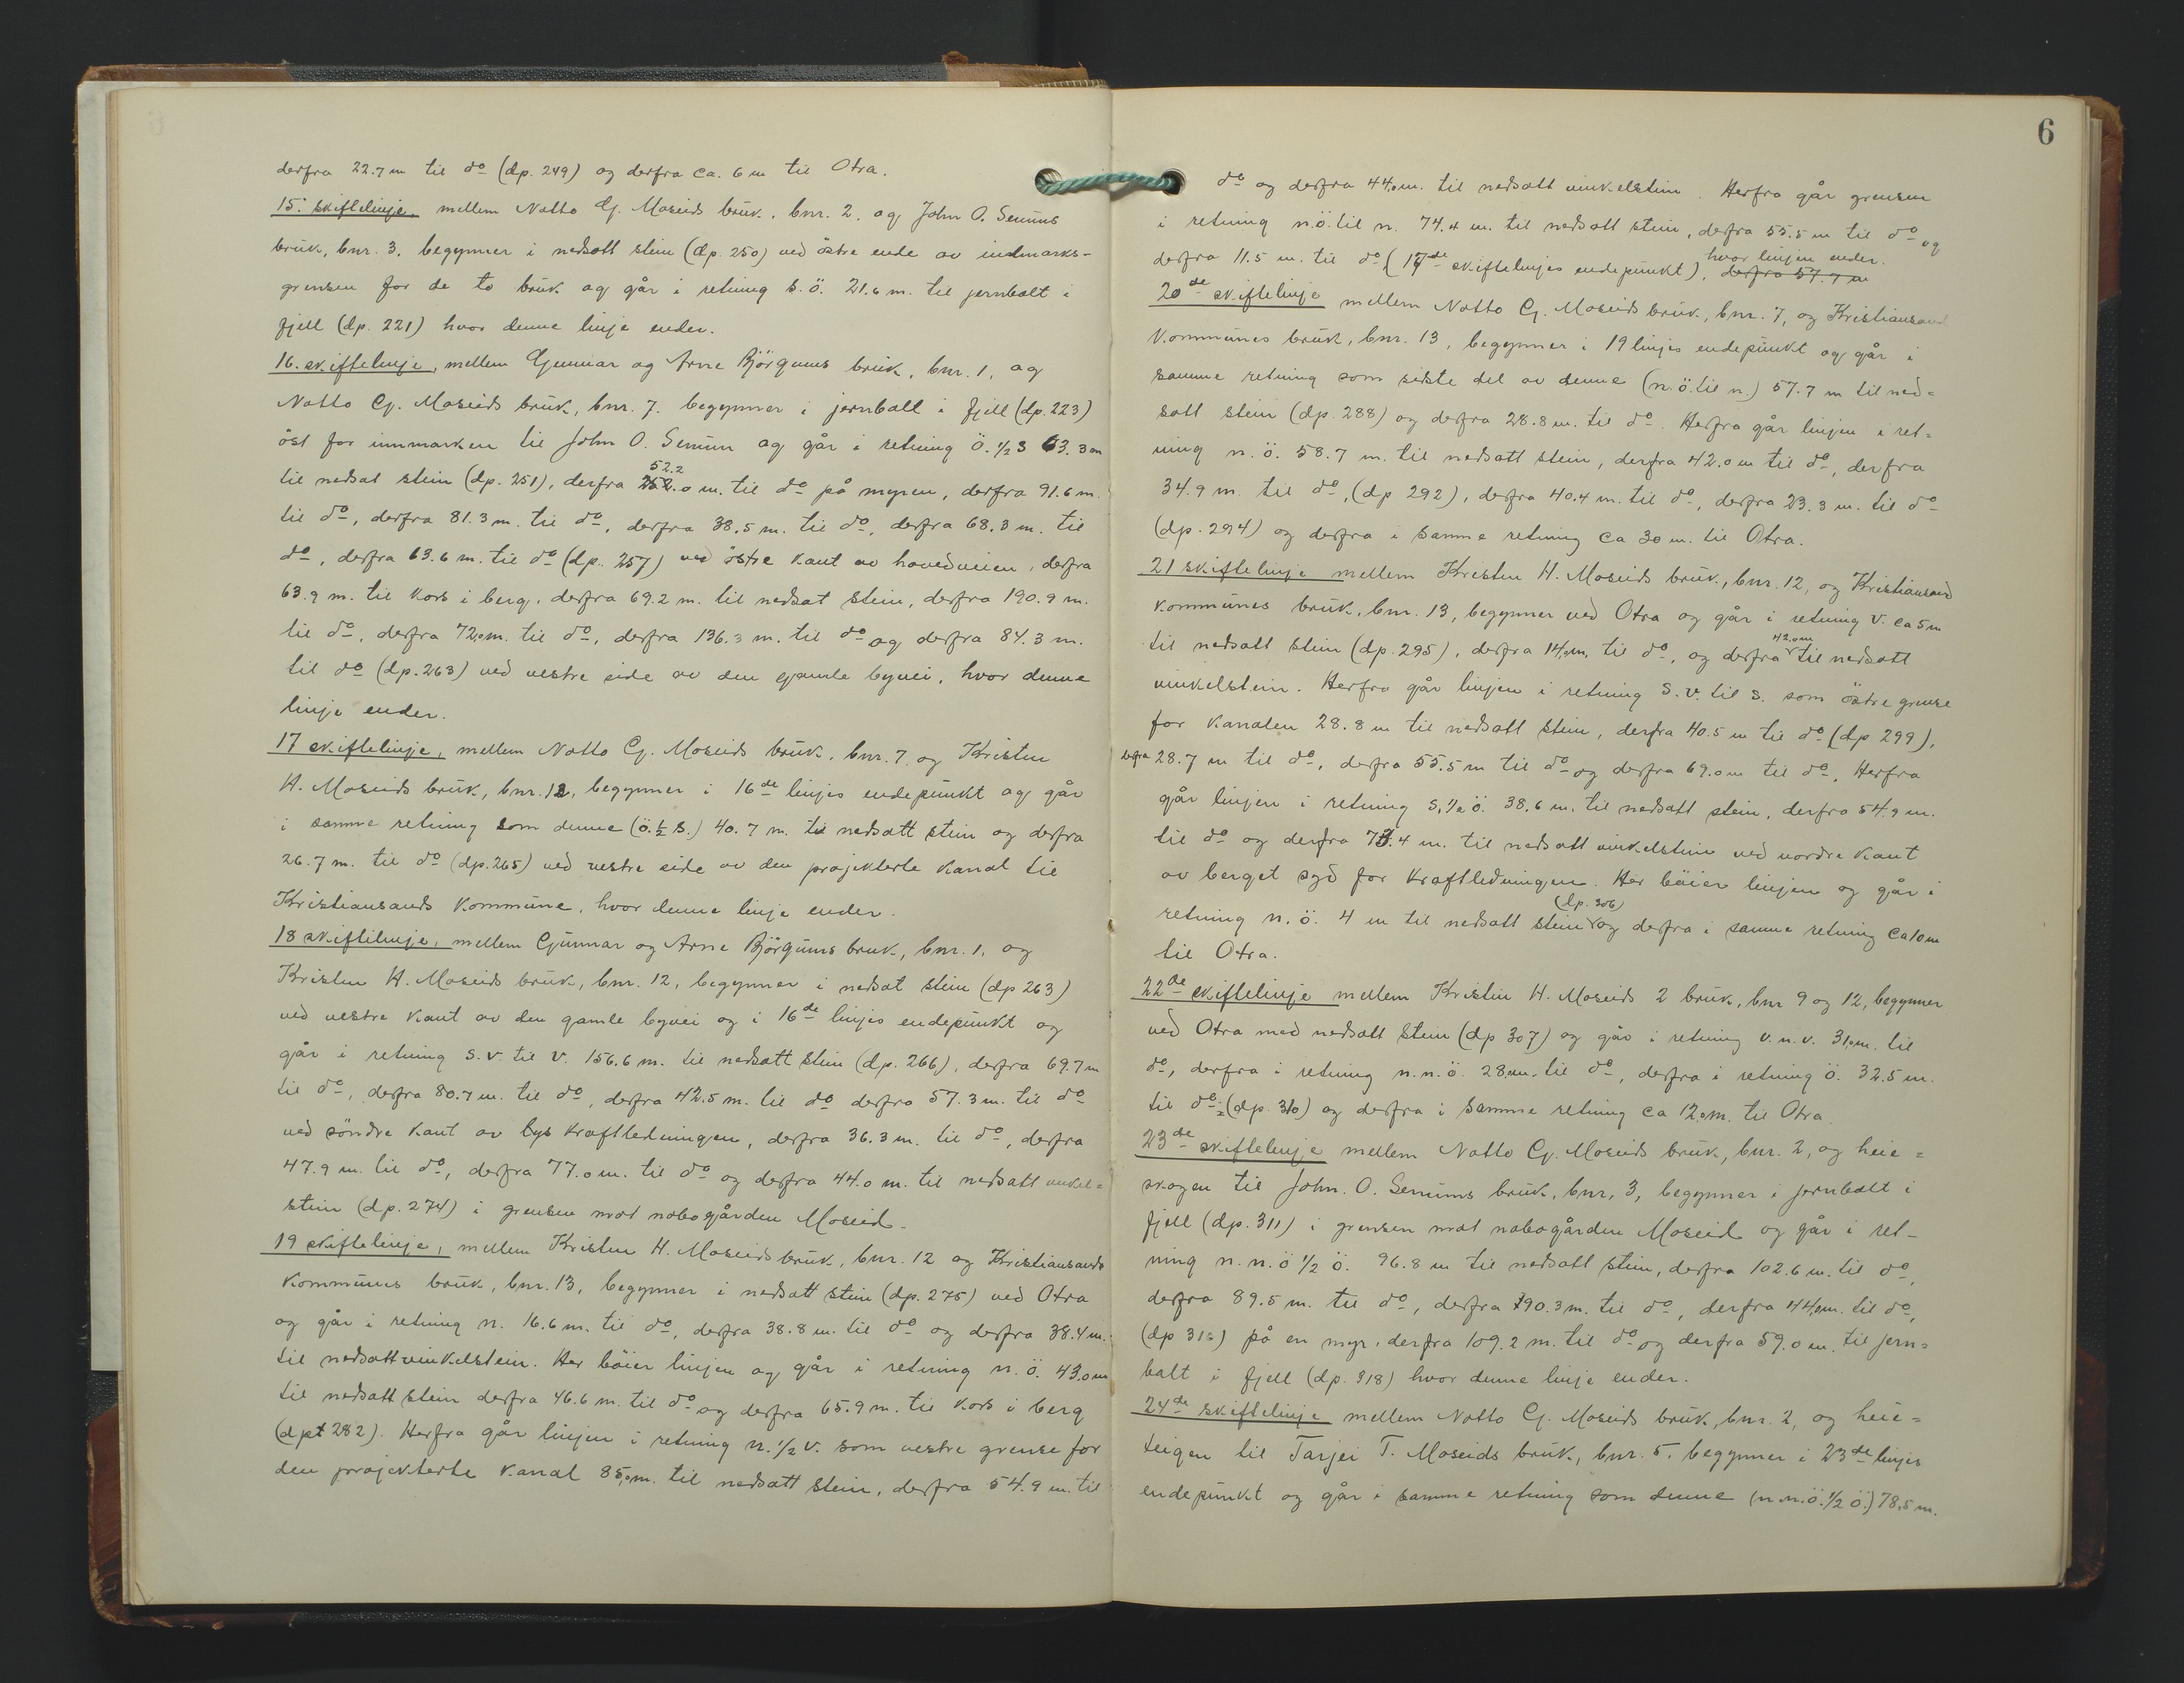 derfra 22.7 m til do (dp. 249) og derfra ca. 6 m til Otra.
15. skiftelinje, mellem Notto G. Moseids bruk, bnr. 2. og John O. Senums
bruk, bnr. 3, begynner i nedsatt stein (dp. 250) ved östre ende av indmarks-
grensen for de to bruk og går i retning s.ö. 21.6 m. til jernbolt i
fjell (dp. 221) hvor denne linje ender.
16. skiftelinje, mellem Gunnar og Arne Björgums bruk, bnr. 1, og
Notto G. Moseids bruk, bnr. 7. begynner i jernbolt i fjell (dp. 223)
öst for innmarken til John O. Senum og går i retning Ö. 1/2 S 63.3 m
til nedsat stein (dp. 251), derfra 52.2 m. til do på myren, derfra 91.6 m.
til do, derfra 81.3 m. til do, derfra 38.5 m. til do, derfra 68.3 m. til
do, derfra 63.6 m. til do (dp. 257) ved östre kant av hovedveien, derfra
63.9 m. til kors i berg, derfra 69.2 m. til nedsat stein, derfra 190.9 m.
til do, derfra 72.0 m. til do, derfra 136.3 m. til do og derfra 84.3 m.
til do (dp. 263) ved vestre side av den gamle byvei, hvor denne
linje ender.
17 skiftelinje, mellem Notto G. Moseids bruk, bnr. 7 og Kristen
H. Moseids bruk, bnr. 12, begynner i 16de linjes endepunkt og går
i samme retning som denne (ö. 1/2 s.) 40.7 m. til nedsatt stein og derfra
26.7 m. til do (dp. 265) ved vestre side av den projekterte kanal til
Kristiansands kommune, hvor denne linje ender.
18 skiftelinje, mellem Gunnar og Arne Björgums bruk, bnr. 1, og
Kristen H. Moseids bruk, bnr. 12, begynner i nedsat stein (dp 263)
ved vestre kant av den gamle byvei og i 16de linjes endepunkt og
går i retning s.v. til v. 156.6 m. til nedsatt stein (dp. 266), derfra 69.7 m
til do, derfra 80.7 m. til do, derfra 42.5 m. til do derfra 57.3 m. til do
ved söndre kant av lys kraftledningen, derfra 36.3 m. til do, derfra
47.9 m. til do, derfra 77.0 m. til do og derfra 44.0 m. til nedsatt vinkel=
stein (dp. 274) i grensen mot nabogården Moseid.
19 skiftelinje, mellem Kristen H. Moseids bruk, bnr. 12 og Kristiansands
kommunes bruk, bnr. 13, begynner i nedsatt stein (dp. 275) ved Otra
og går i retning n. 16.6 m. til do, derfra 38.8 m. til do og derfra 38.4 m.
til nedsatt vinkelstein. Her böier linjen og går i retning n.ö. 43.0 m
til nedsatt stein derfra 46.6 m. til do og derfra 65.9 m. til kors i berg
(dpt 282). Herfra går linjen i retning n. 1/2 v. som vestre grense for
den projekterte kanal 85.0 m. til nedsatt stein, derfra 54.9 m. til
6
do og derfra 44.0 m. til nedsatt vinkelstein. Herfra går grensen
i retning n.ö. til n. 74.4 m. til nedsatt stein, derfra 55.5 m til do og
derfra 11.5 m. til do (17de skiftelinjes endepunkt), hvor linjen ender. derfra 57.7 m
20de skiftelinje mellem Notto G. Moseids bruk, bnr. 7, og Kristiansand
kommunes bruk, bnr. 13, begynner i 19 linjes endepunkt og går i
samme retning som siste del av denne (n.ö. til n.) 57.7 m til ned=
satt stein (dp. 288) og derfra 28.8 m. til do. Herfra går linjen i ret=
ning n.ö. 58.7 m. til nedsatt stein, derfra 42.0 m til do, derfra
34.9 m. til do, (dp 292), derfra 40.4 m. til do, derfra 23.3 m. til do
(dp. 294) og derfra i samme retning ca 30 m. til Otra.
21 skiftelinje mellem Kristen H. Moseids bruk, bnr. 12, og Kristiansand
kommunes bruk, bnr. 13, begynner ved Otra og går i retning v. ca 5 m
til nedsatt stein (dp. 295), derfra 14.0 m. til do, og derfra 42.0 m til nedsatt
vinkelstein. Herfra går linjen i retning s.v. til s. som östre grense
for kanalen 28.8 m til nedsatt stein, derfra 40.5 m til do (dp 299),
derfra 28.7 m til do, derfra 55.5 m til do og derfra 69.0 m til do, Herfra
går linjen i retning s. 1/2 ö. 38.6 m. til nedsatt stein, derfra 54.9 m.
til do og derfra 73.4 m. til nedsatt vinkelstein ved nordre kant
av berget syd for kraftledningen. Her böier linjen og går i
retning n.ö. 4 m til nedsatt stein (dp. 306) og derfra i samme retning ca 10 m
til Otra.
22de skiftelinje mellem Kristen H. Moseids 2 bruk, bnr 9 og 12, begynner
ved Otra med nedsatt stein (dp 307) og går i retning v.n.v. 31.0 m. til
do, derfra i retning n.n.ö. 28.0 m. til do, derfra i retning ö. 32.5 m.
til do (dp. 310) og derfra i samme retning ca 12.0 m. til Otra.
23de skiftelinje mellem Notto G. Moseids bruk, bnr. 2, og heie=
skogen til John. O. Senums bruk, bnr, 3, begynner i jernbolt i
fjell (dp. 311) i grensen mot nabogården Moseid og går i ret-
ning n.n.ö 1/2 ö. 96.8 m til nedsatt stein, derfra 102.6 m. til do,
derfra 89.5 m. til do, derfra 190.3 m. til do, derfra 44.0 m. til do,
(dp 316) på en myr, derfra 109.2 m. til do og derfra 59.0 m. til jern=
bolt i fjell (dp. 318) hvor denne linje ender.
24de skiftelinje mellem Notto G. Moseids bruk, bnr. 2, og heie=
teigen til Tarjei T. Moseids bruk, bnr. 5, begynner i 23de linjes
endepunkt og går i samme retning som denne (n.n.ö. 1/2 ö.) 78.5 m.